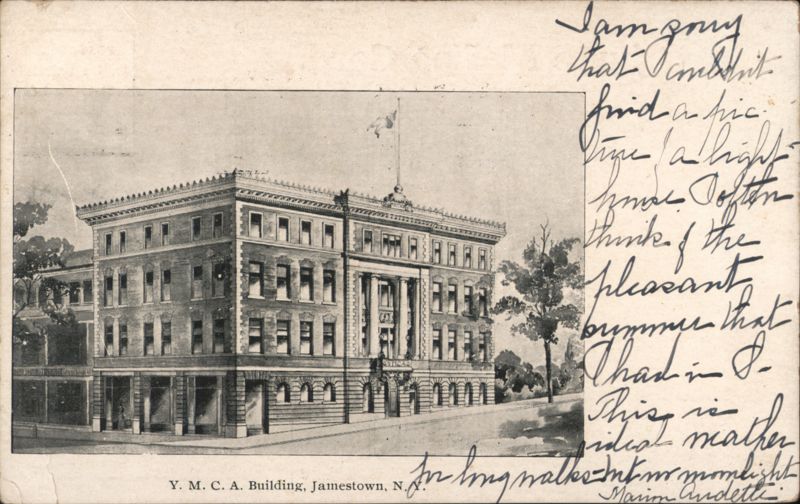 I am sorry
that I couldn't
find a pic-
ture of a light-
house. I often
think of the
pleasant
summer that
I had in S-
This is
ideal weather
for long walks - but no moonlight
Marion
Y. M. C. A. Building, Jamestown, N. Y.